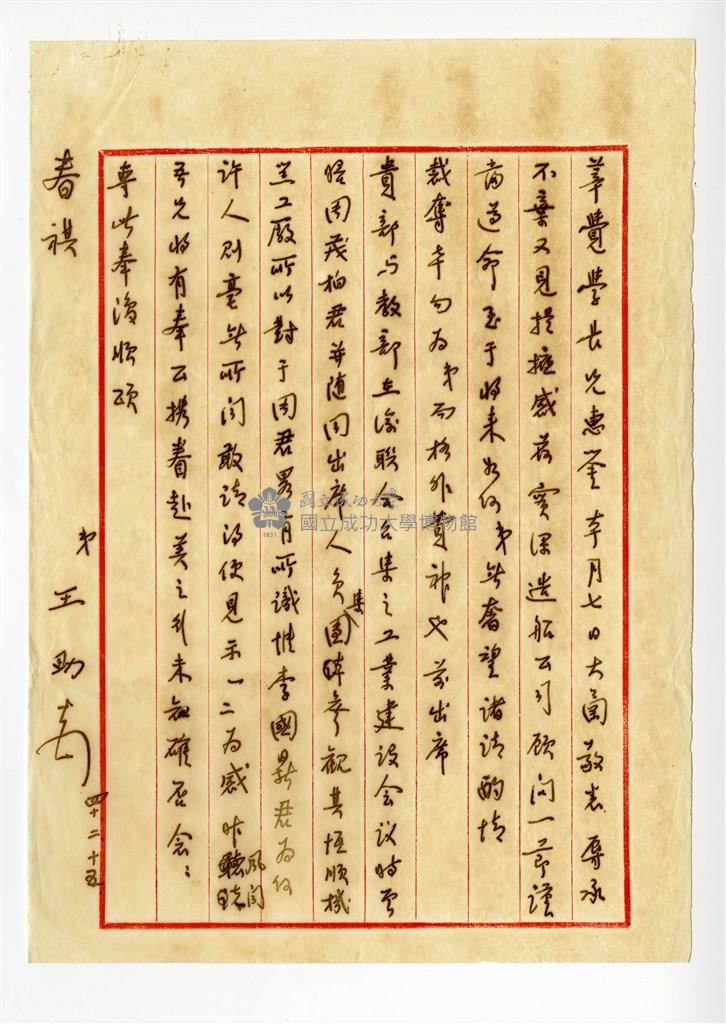 莘覺學長兄惠鑒本月七日大函敬悉辱承
不棄又見提攜感荷實深造船公司顧問一節謹
當遵命至于將來如何弟無奢望諸請酌情
裁奪幸勿為弟而格外費神也前出席
貴部與教部在渝聯合召集之工業建設會議時曾
晤周茂柏君並隨同出席人員集團參觀其恆順機
器工廠所以對于周君畧有所識惟李國鼎君為何
許人則毫無所聞敢請得便見示一二為感昨聽說風聞
吾兄將有奉公携眷赴美之行未知確否念念
專此奉復順頌
春祺
弟 王助
四十二十五
國立成功大學
國立成功大學博物館
1931